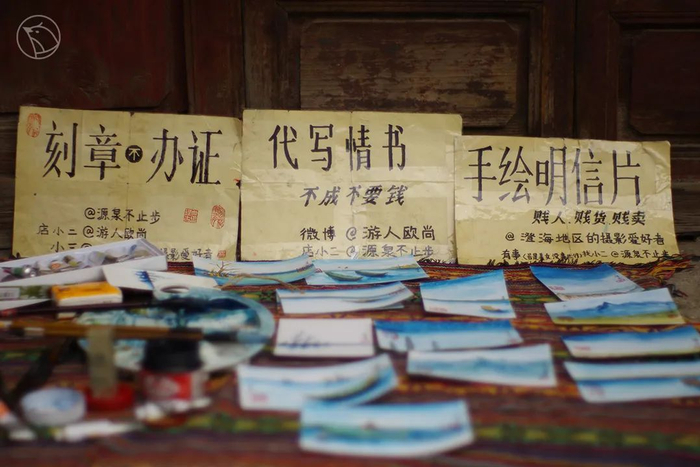 刻章不办证
@源泉不止步
店小二@游人欧尚
代写情书
不成不要钱
微博@游人欧尚
店小二@源泉不止步
手绘明信片
贱人.贱货.贱卖
@澄海地区的摄影爱好者